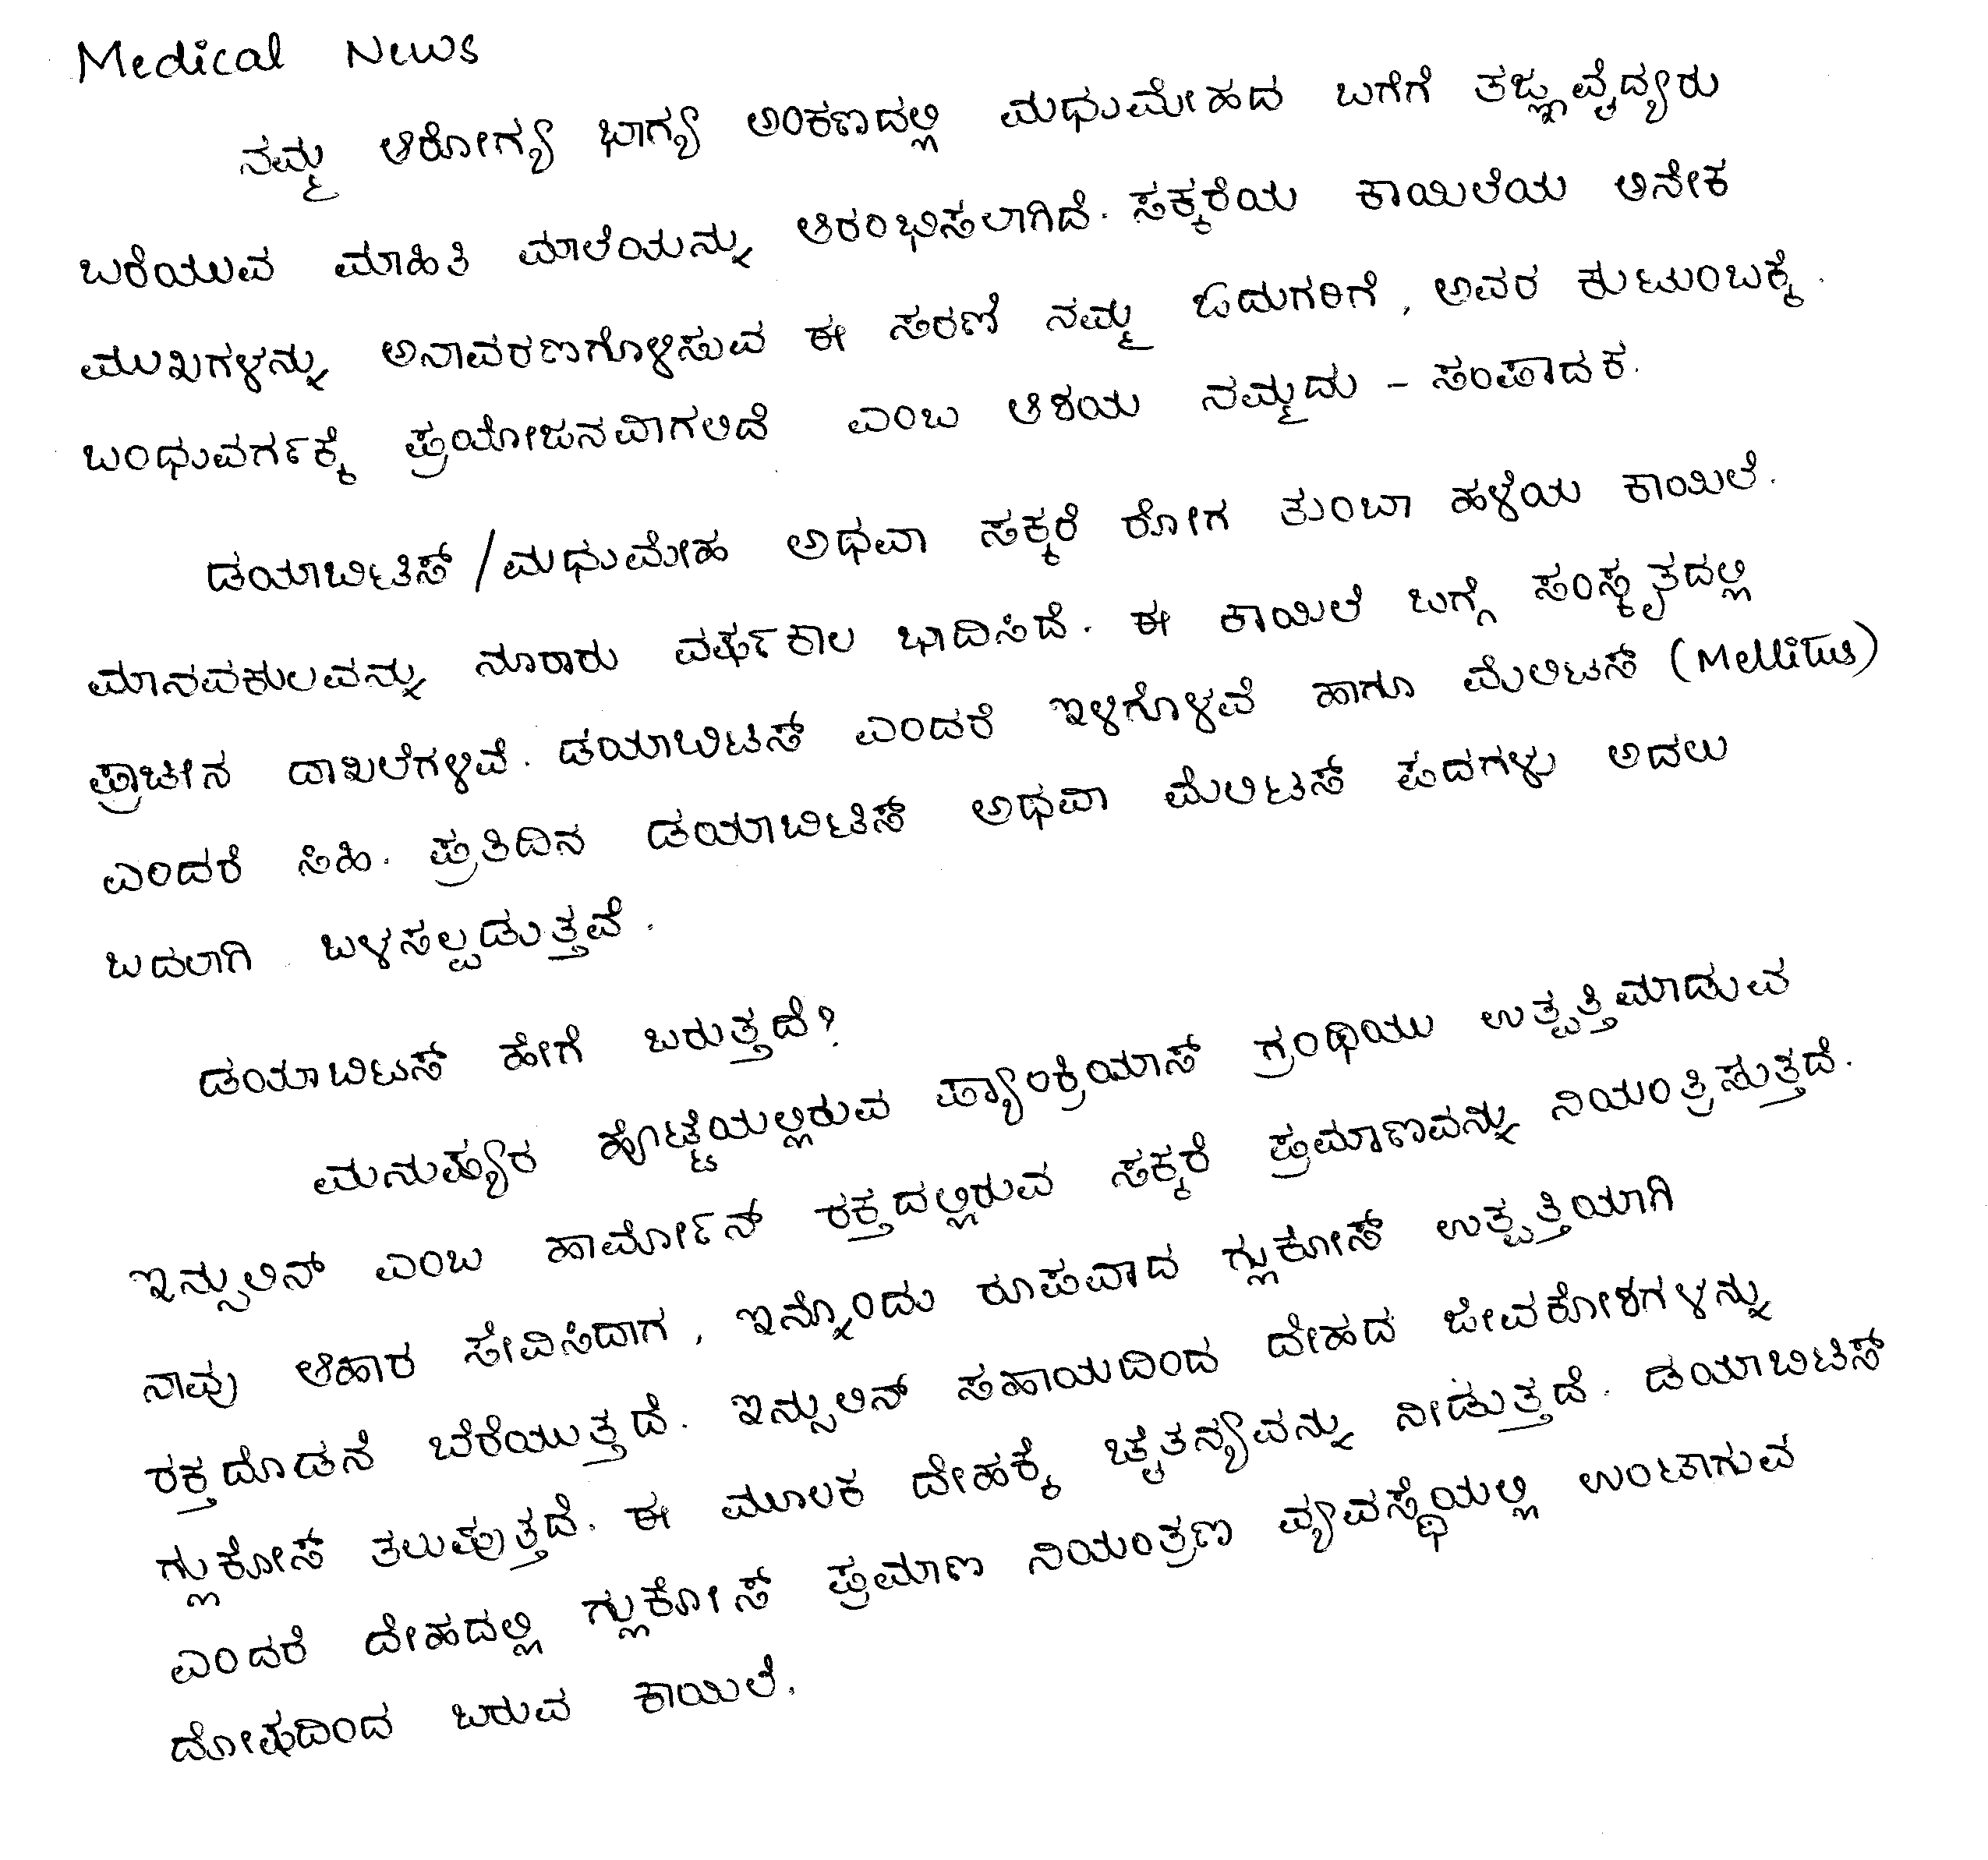 Medical News
ನಮ್ಮ ಆರೋಗ್ಯ ಭಾಗ್ಯ ಅಂಕಣದಲ್ಲಿ ಮಧುಮೇಹದ ಬಗೆಗೆ ತಜ್ಞವೈದ್ಯರು
ಬರೆಯುವ ಮಾಹಿತಿ ಮಾಲೆಯನ್ನು ಆರಂಭಿಸಲಾಗಿದೆ. ಸಕ್ಕರೆಯ ಕಾಯಿಲೆಯ ಅನೇಕ
ಮುಖಗಳನ್ನು ಅನಾವರಣಗೊಳಿಸುವ ಈ ಸರಣಿ ನಮ್ಮ ಓದುಗರಿಗೆ, ಅವರ ಕುಟುಂಬಕ್ಕೆ.
ಬಂಧುವರ್ಗಕ್ಕೆ ಪ್ರಯೋಜನವಾಗಲಿದೆ ಎಂಬ ಆಶಯ ನಮ್ಮದು - ಸಂಪಾದಕ.
ಡಯಾಬಿಟಿಸ್/ಮಧುಮೇಹ ಅಥವಾ ಸಕ್ಕರೆ ರೋಗ ತುಂಬಾ ಹಳೆಯ ಕಾಯಿಲೆ.
ಮಾನವಕುಲವನ್ನು ನೂರಾರು ವರ್ಷಕಾಲ ಭಾದಿಸಿದೆ. ಈ ಕಾಯಿಲೆ ಬಗ್ಗೆ ಸಂಸ್ಕೃತದಲ್ಲಿ
ಪ್ರಾಚೀನ ದಾಖಲೆಗಳಿವೆ. ಡಯಾಬಿಟಸ್ ಎಂದರೆ ಇಳಿಗೊಳವೆ ಹಾಗೂ ಮೆಲಿಟಸ್ (Mellitus)
ಎಂದರೆ ಸಿಹಿ. ಪ್ರತಿದಿನ ಡಯಾಬಿಟಿಸ್ ಅಥವಾ ಮೆಲಿಟಸ್ ಪದಗಳು ಅದಲು
ಬದಲಾಗಿ ಬಳಸಲ್ಪಡುತ್ತವೆ.
ಡಯಾಬಿಟಸ್ ಹೇಗೆ ಬರುತ್ತದೆ?
ಮನುಷ್ಯರ ಹೊಟ್ಟೆಯಲ್ಲಿರುವ ಪ್ಯಾಂಕ್ರಿಯಾಸ್ ಗ್ರಂಥಿಯು ಉತ್ಪತ್ತಿಮಾಡುವ
ಇನ್ಸುಲಿನ್ ಎಂಬ ಹಾರ್ಮೋನ್ ರಕ್ತದಲ್ಲಿರುವ ಸಕ್ಕರೆ ಪ್ರಮಾಣವನ್ನು ನಿಯಂತ್ರಿಸುತ್ತದೆ.
ನಾವು ಆಹಾರ ಸೇವಿಸಿದಾಗ, ಇನ್ನೊಂದು ರೂಪವಾದ ಗ್ಲುಕೋಸ್ ಉತ್ಪತ್ತಿಯಾಗಿ
ರಕ್ತದೊಡನೆ ಬೆರೆಯುತ್ತದೆ. ಇನ್ಸುಲಿನ್ ಸಹಾಯದಿಂದ ದೇಹದ ಜೀವಕೋಶಗಳನ್ನು
ಗ್ಲುಕೋಸ್ ತಲುಪುತ್ತದೆ. ಈ ಮೂಲಕ ದೇಹಕ್ಕೆ ಚೈತನ್ಯವನ್ನು ನೀಡುತ್ತದೆ. ಡಯಾಬಿಟಿಸ್
ಎಂದರೆ ದೇಹದಲ್ಲಿ ಗ್ಲುಕೋಸ್ ಪ್ರಮಾಣ ನಿಯಂತ್ರಣ ವ್ಯವಸ್ಥೆಯಲ್ಲಿ ಉಂಟಾಗುವ
ದೋಷದಿಂದ ಬರುವ ಕಾಯಿಲೆ.